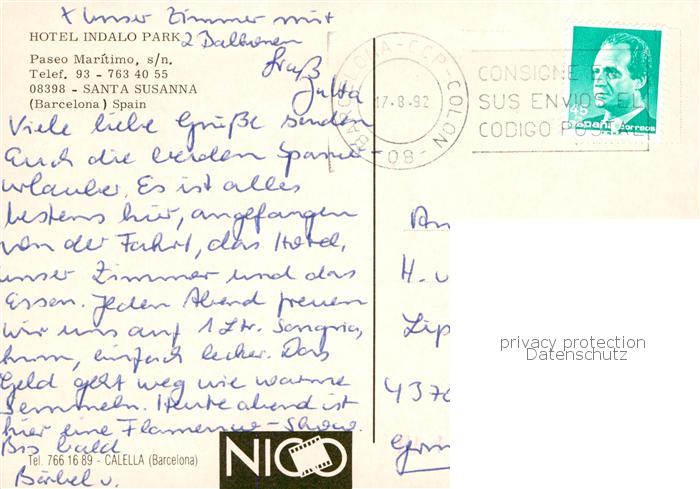 x Unser Zimmer mit
2 Balkonen
Gruß
Jutta
HOTEL INDALO PARK
Paseo Marítimo, s/n.
Telef. 93 - 763 40 55
08398 - SANTA SUSANNA
(Barcelona) Spain
Viele liebe Grüße senden
Euch die beiden Spanien-
urlauber. Es ist alles
bestens hier, angefangen
von der Fahrt, das Hotel,
unser Zimmer und das
Essen. Jeden Abend freuen
wir uns auf 1 Ltr. Sangria,
hmm, einfach lecker. Das
Geld geht weg wie warme
Semmeln. Heute abend ist
hier eine Flamenco-Show.
Bis bald
Bärbel u.
Tel. 766 16 89 - CALELLA (Barcelona)
NICO
BARCELONA-CCP-COLON
17-8-92
-08-
CONSIGNE EN
SUS ENVIOS EL
CODIGO POSTAL
45
España correos
An
H. u
Lip
4370
privacy protection
Datenschutz